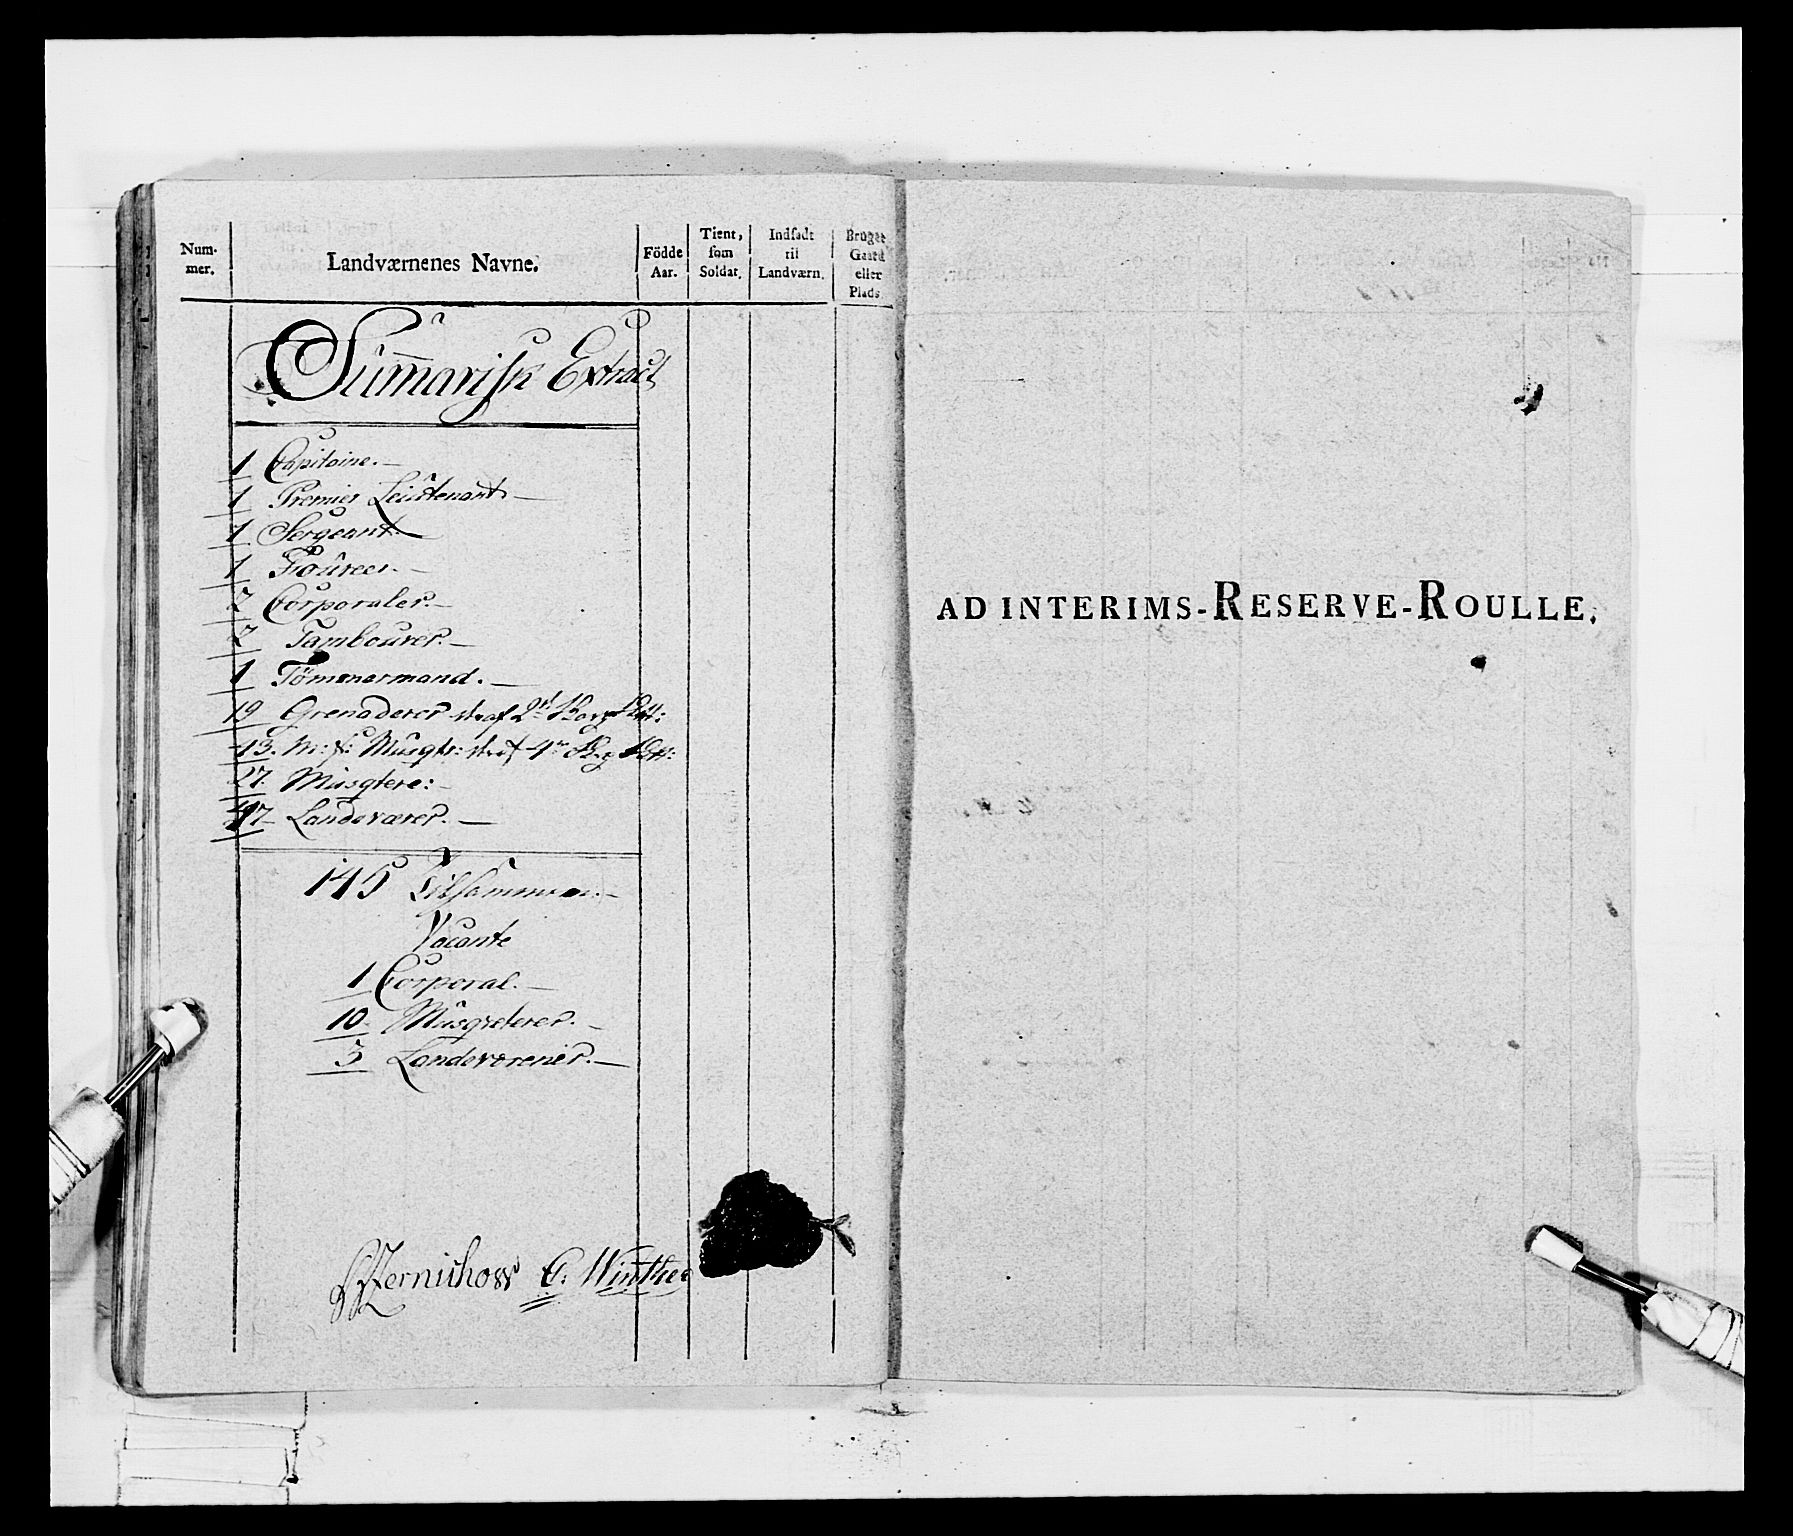 Num-
mer.
Landværnenes Navne.
Födde
Aar.
Tient,
som
Soldat.
Indsadt
til
Landværn.
Bruger
Gaard
eller
Plads.
Sum̄arisk Extract
1 Capitaine.
1 Premier Leiutenant
1 Sergeant
1 Foureer.
2 Corporaler.
2 Tambourer.
1 Tömmermand.
19 Grenaderer
43. Musqtr:
27. Musqtere:
47 Landeværer.
145 Tilsammen.
Vacante
1 Corporal.
10. Musqveterer.
3 Landeværener.
C: Winther
AD INTERIMS-RESERVE-ROULLE.